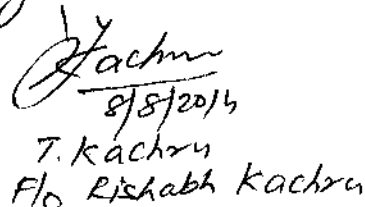 Kachru
8/8/2014
T. Kachru
F/o Rishabh Kachru